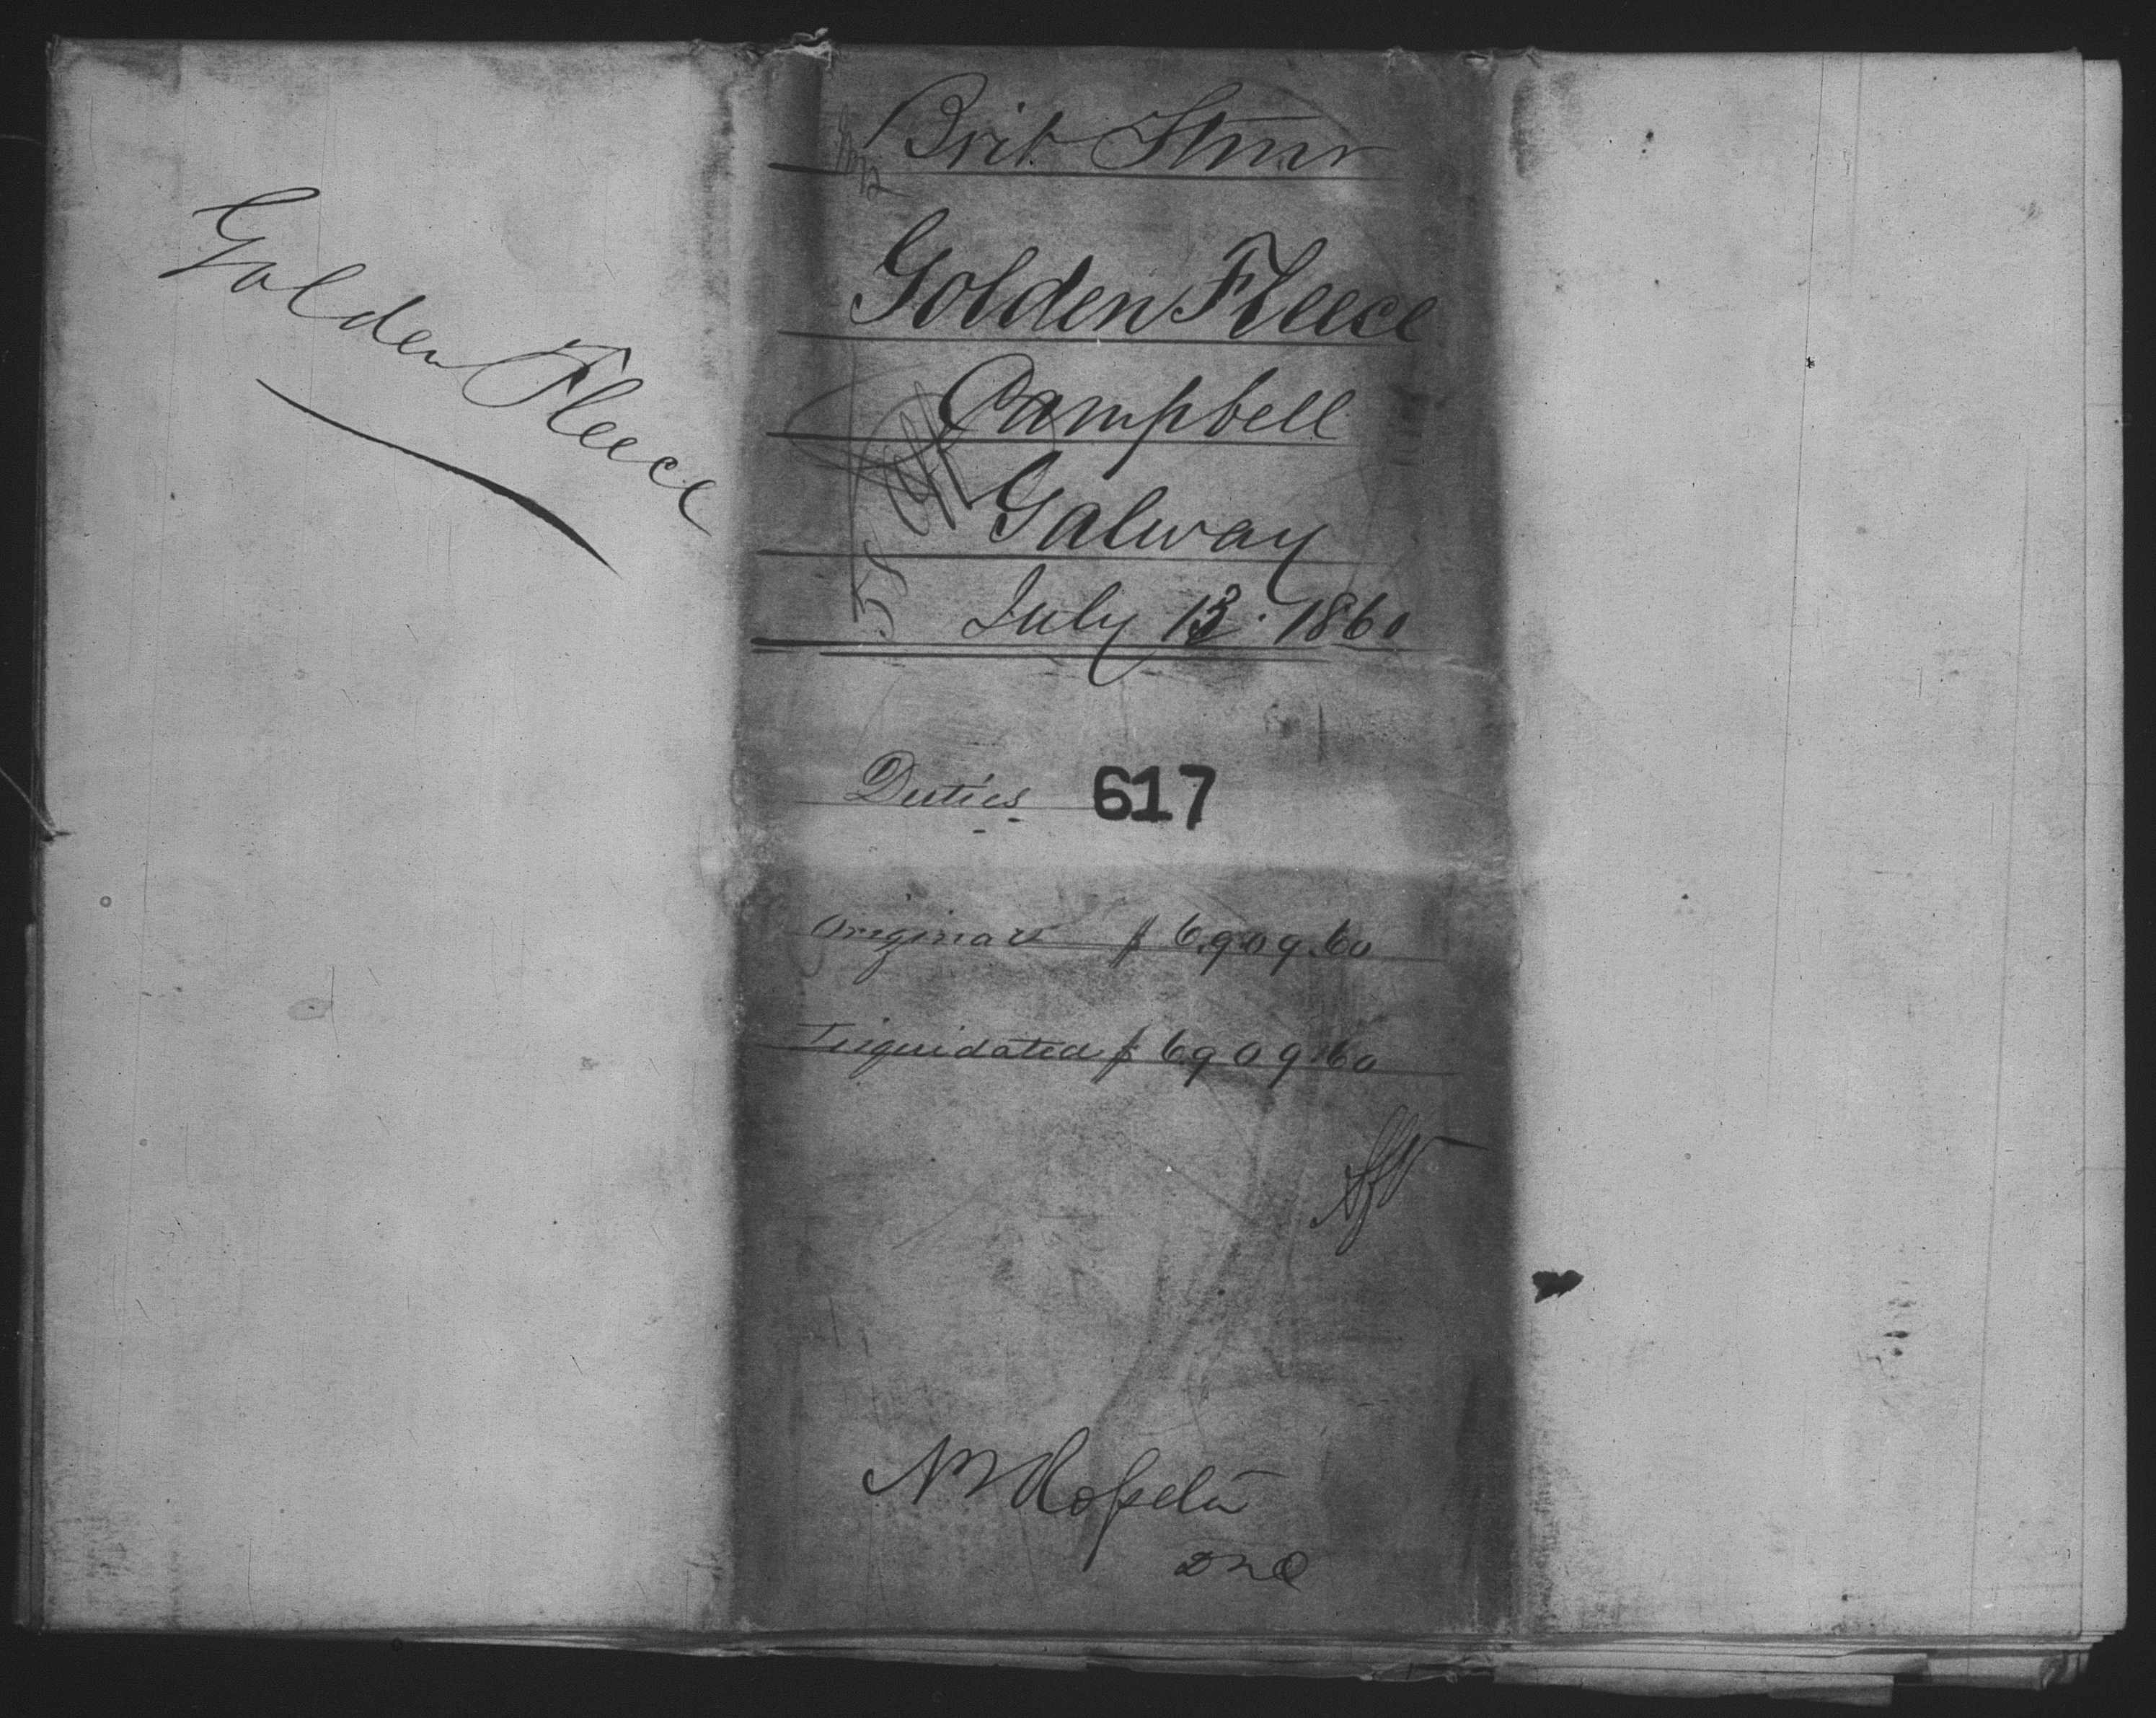 Golden Fleece
Brit Stmr
Golden Fleece
Campbell
Galway
July 13. 1860
Duties 617
Original $ 6,909.60
Liquidated $ 6909.60